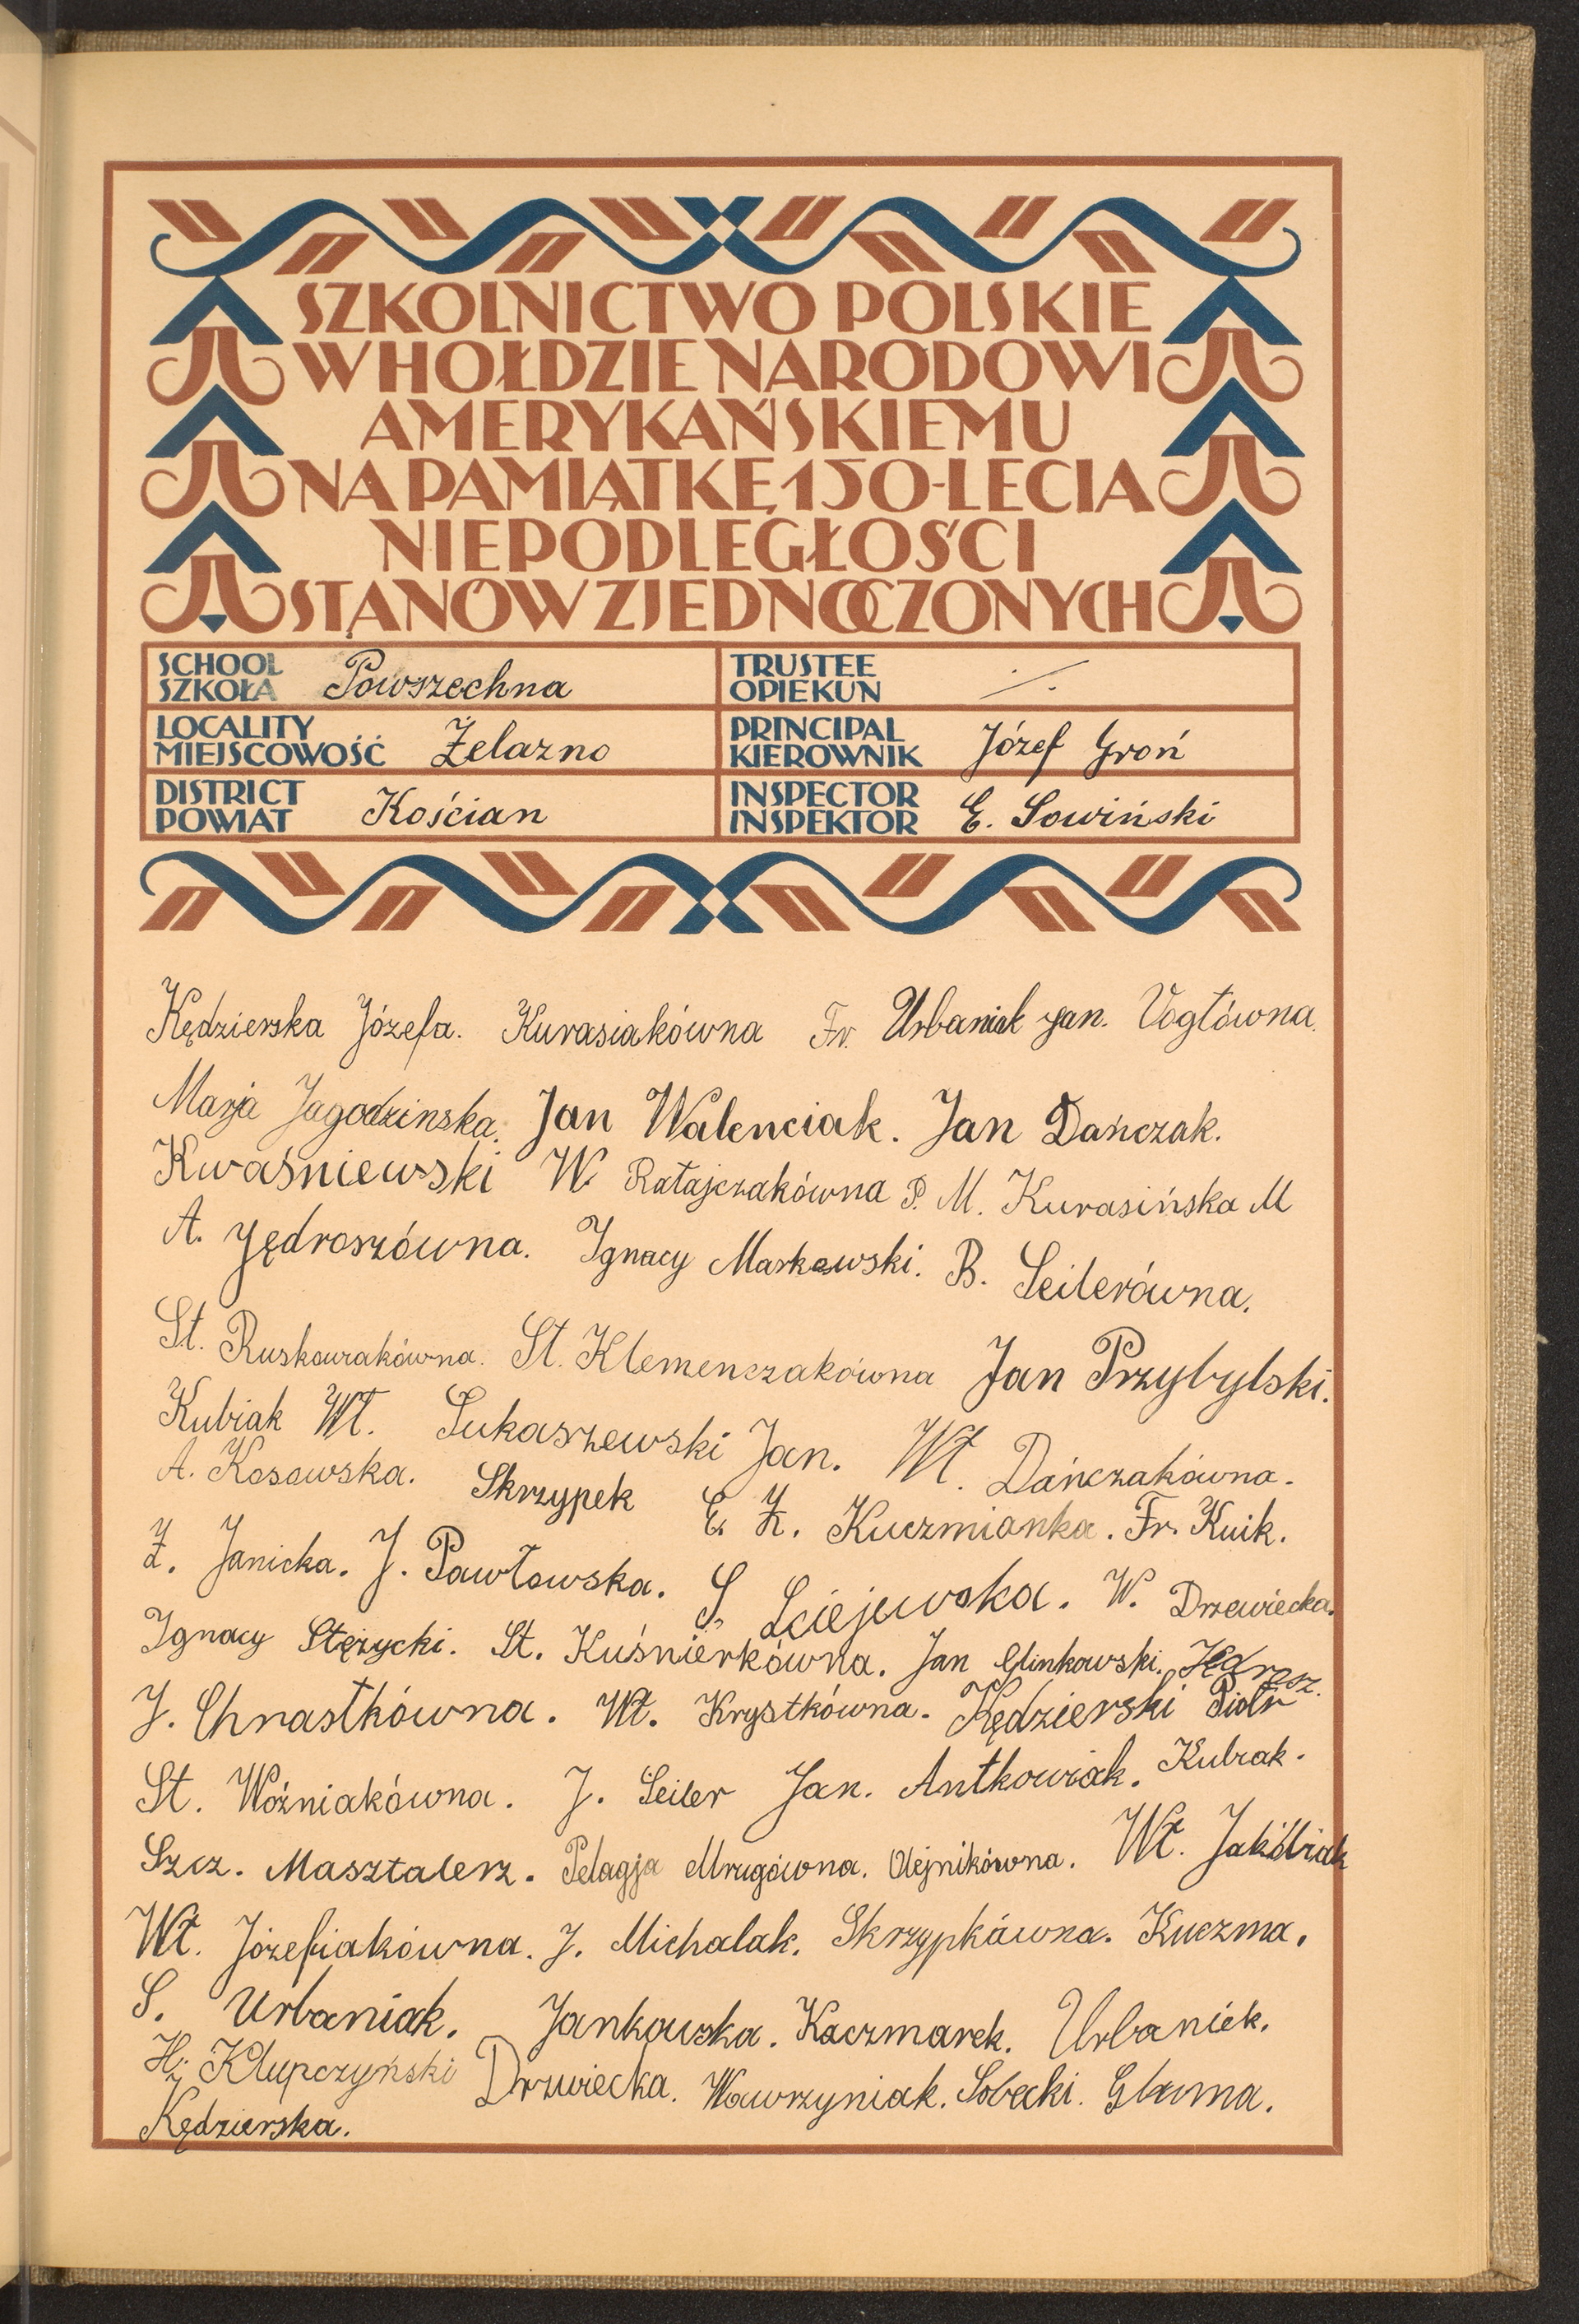 SZKOLNICTWO POLSKIE
W HOŁDZIE NARODOWI
AMERYKAŃSKIEMU
NA PAMIĄTKĘ 150-LECIA
NIEPODLEGŁOŚCI
STANÓW ZJEDNOCZONYCH
SCHOOL
SZKOŁA Powszechna
TRUSTEE
OPIEKUN
LOCALITY
MIEJSCOWOŚĆ Żelazno
PRINCIPAL
KIEROWNIK Józef Groń
DISTRICT
POWIAT Kościan
INSPECTOR
INSPEKTOR E. Sowiński
Kędzierska Józefa. Kurasiakówna Fr. Urbaniak Jan. Vogtówna.
Marja Jagodzinska. Jan Walenciak. Jan Dańczak.
Kwaśniewski W. Ratajczakówna P. M. Kurasińska M
A. Jędroszówna. Ignacy Markowski. B. Seilerówna.
St. St. Klemenczakówna Jan Przybylski.
Kubiak Wł. Łukaszewski Jan. Wł. Dańczakówna.
A. Kosowska. Skrzypek E. K. Kuczmianka. Fr. Kuik.
Z. Janicka. J. Pawłowska. S. W. Drzewiecka.
Ignacy Stężycki. St. Kuśnierkówna. Jan Glinkowski.
J. Chrastkówna. Wł. Krystkówna. Kędzierski Piotr
St. Woźniakówna. J. Seiler Jan. Antkowiak. Kubiak.
Szcz. Masztalerz. Pelagja Mrugówna. Olejnikówna. Wł. Jakóbiak
Wł. Józefiakówna. J. Michalak. Skrzypkówna. Kuczma.
S. Urbaniak. Jankowska. Kaczmarek. Urbaniak.
H. Klupczyński Drzwiecka. Wawrzyniak. Sobecki. Glawma.
Kędzierska.